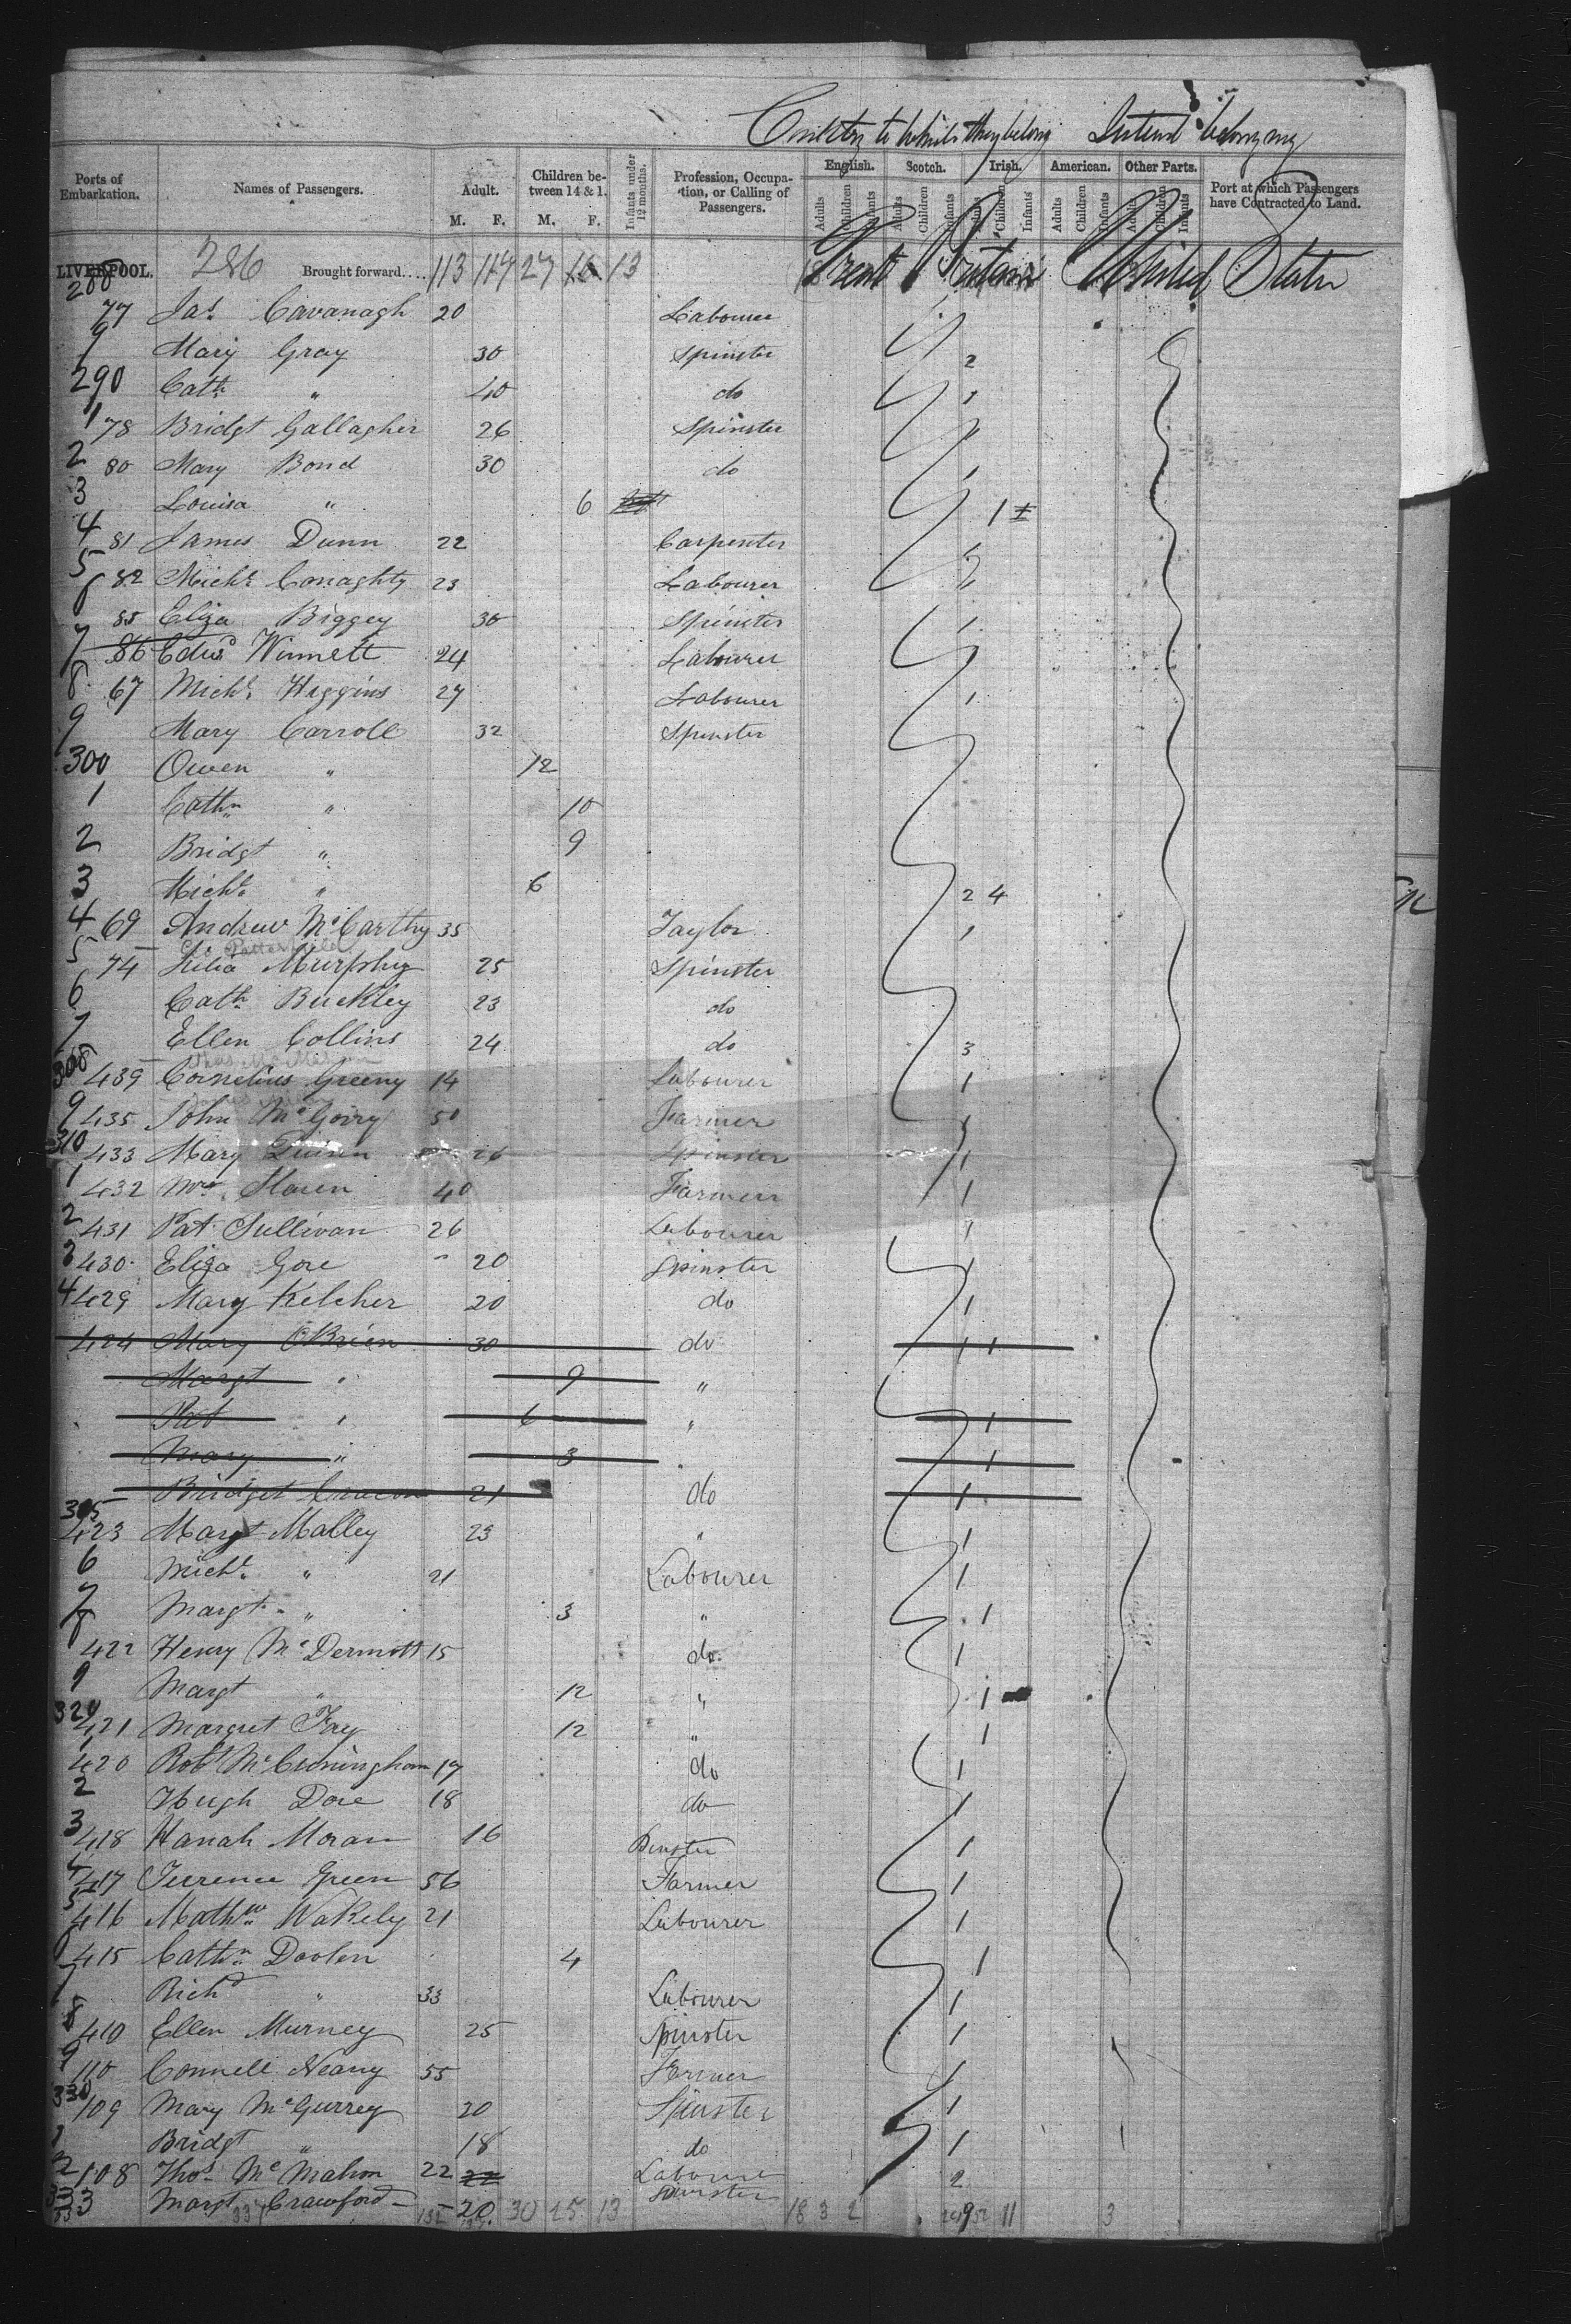 Country to which they belong Intend belonging
Ports of Embarkation. Names of Passengers. Adult. M. F. Children between 14 & 1. M. F. Infants under 12 months. Profession, Occupation, or Calling of Passengers. English. Adults Children Infants Scotch. Adults Children Infants Irish. Adults Children Infants American. Adults Children Infants Other Parts. Adults Children Infants Port at which Passengers have Contracted to Land.
LIVERPOOL. 286 Brought forward.... 113 117 27 16 13 Great Britain United States
288 77 Jas. Cavanagh 20 Labourer
9 Mary Gray 30 Spinster 2
290 Cath. " 40 do 1
1 78 Bridgt Gallagher 26 Spinster
2 80 Mary Bond 30 do 1
3 Louisa " 6 1
4 81 James Dunn 22 Carpenter
5 82 Michl Conaghty 23 Labourer
6 85 Eliza Biggey 30 Spinster 1
7 86 Edwd Winnett 24 Labourer 1
8 67 Michl Higgins 27 Labourer 1
9 Mary Carroll 32 Spinster
300 Owen " 12
1 Cathn " 10
2 Bridgt " 9
3 Michl " 6 2 4
4 69 Andrew McCarthy 35 Taylor 1
5 74 Julia Murphy 25 Spinster
6 Cath Buckley 23 do
7 Ellen Collins 24 do 3
308 439 Cornelius Greeny 14 Labourer 1
9 435 John McGoiry 50 Farmer 1
310 433 Mary Quinn 26 Spinster 1
1 432 Slaven 40 Farmer 1
2 431 Pat Sullivan 26 Labourer 1
3 430 Eliza Gore 20 Spinster 1
4 429 Mary Kelcher 20 do 1
424 Mary O'Brien 30 do 1 1
Margt " 9 "
Pat " 6 " 1
Mary " 3 " 1
Bridget 21 do 1
315 423 Margt Malley 23 " 1
6 Michl " 21 Labourer 1
7 Margt " 3 " 1
8 422 Henry McDermott 15 do 1
9 Margt " 12 " 1
320 421 Margret Fay 12 " 1
1 420 Robt McCunningham 17 do 1
2 Hugh Dore 18 do 1
3 418 Hanah Moran 16 Pinster 1
4 417 Terrence Green 56 Farmer 1
5 416 Mathw Wakely 21 Labourer 1
6 415 Cathn Doolen 4 1
7 Richd " 33 Labourer 1
8 410 Ellen Murney 25 Spinster 1
9 110 Connell Neary 55 Farmer 1
330 109 Mary McGurrey 20 Spinster 1
1 Bridgt " 18 do 1
2 108 Thos McMahon 22 22 Labourer 2
333 Margt Crawford 20 Spinster
30 25 13 18 3 2 11 3